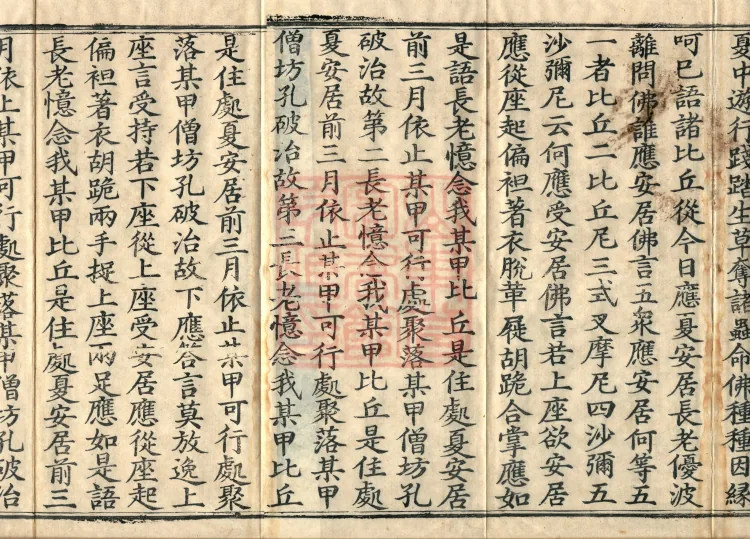 夏中遊行踐蹋生草奪諸蟲命佛種種因緣
呵巳語諸比丘從今日應夏安居長老優波
離問佛誰應安居佛言五衆應安居何等五
一者比丘二比丘尼三式叉摩尼四沙彌五
沙彌尼云何應受安居佛言若上座欲安居
應從座起偏袒著衣脫革屣胡跪合掌應如
是語長老憶念我某甲比丘是住處夏安居
前三月依止某甲可行處聚落某甲僧坊孔
破治故第二長老憶念我某甲比丘是住處
夏安居前三月依止某甲可行處聚落某甲
僧坊孔破治故第三長老憶念我某甲比丘
是住處夏安居前三月依止某甲可行處聚
落某甲僧坊孔破治故下應答言莫放逸上
座言受持若下座從上座受安居應從座起
偏袒著衣胡跪兩手捉上座兩足應如是語
長老憶念我某甲比丘是住處夏安居前三
月依止某甲可行處聚落某甲僧坊孔破治